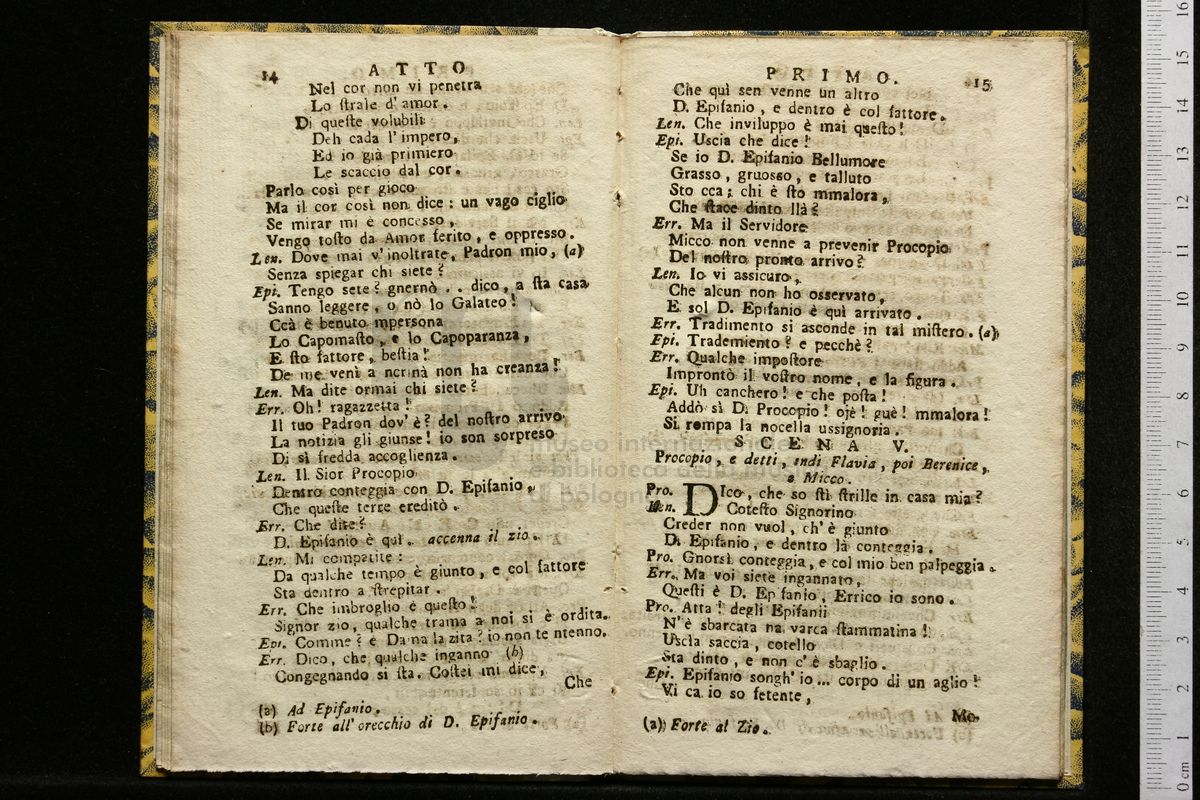 14 ATTO
Nel cor non vi penetra
Lo ſtrale d' amor.
Di queſte volubili
Deh cada l' impero,
Ed io già primiero
Le scaccio dal cor.
Parlo così per gioco
Ma il cor così non dice : un vago ciglio
Se mirar mi è concesso,
Vengo toſto da Amor ferito, e oppresso.
Len. Dove mai v' inoltrate, Padron mio, (a)
Senza spiegar chi siete?
Epi. Tengo sete? gnernò . . dico, a ſta casa
Sanno leggere, o nò lo Galateo!
Ccà è benuto mpersona
Lo Capomaſto, e lo Capoparanza,
E ſto fattore, beſtia!
De me venì a ncrinà non ha creanza!
Len. Ma dite ormai chi siete?
Err. Oh! ragazzetta!
Il tuo Padron dov' è? del noſtro arrivo
La notizia gli giunse! io son sorpreso
Di sì fredda accoglienza.
Len. Il Sior Procopio
Dentro conteggia con D. Epifanio,
Che queſte terre ereditò.
Err. Che dite?
D. Epifanio è quì. accenna il zio.
Len. Mi compatite :
Da qualche tempo è giunto, e col fattore
Sta dentro a ſtrepitar.
Err. Che imbroglio è queſto!
Signor zio, qualche trama a noi si è ordita.
Epi. Comme? è Dama la zita? io non te ntenno.
Err. Dico, che qualche inganno (b)
Congegnando si ſta. Coſtei mi dice,
Che
(a) Ad Epifanio.
(b) Forte all' orecchio di D. Epifanio.
PRIMO. 15
Che quì sen venne un altro
D. Epifanio, e dentro è col fattore.
Len. Che inviluppo è mai queſto!
Epi. Uscia che dice!
Se io D. Epifanio Bellumore
Grasso, gruosso, e talluto
Sto cca; chi è ſto mmalora,
Che ſtace dinto llà?
Err. Ma il Servidore
Micco non venne a prevenir Procopio
Del noſtro pronto arrivo?
Len. Io vi assicuro,
Che alcun non ho osservato,
E sol D. Epifanio è quì arrivato.
Err. Tradimento si asconde in tal miſtero. (a)
Epi. Trademiento? e pecchè?
Err. Qualche impoſtore
Improntò il voſtro nome, e la figura.
Epi. Uh canchero! e che poſta!
Addò sì D. Procopio! ojè! guè! mmalora!
Si rompa la nocella ussignoria.
SCENA V.
Procopio, e detti, indi Flavia, poi Berenice,
e Micco.
Pro. DIco, che so ſti ſtrille in casa mia?
Len. Coteſto Signorino
Creder non vuol, ch' è giunto
D. Epifanio, e dentro là conteggia.
Pro. Gnorsì conteggia, e col mio ben palpeggia.
Err. Ma voi siete ingannato,
Queſti è D. Epifanio, Errico io sono.
Pro. Atta! degli Epifanii
N' è sbarcata na varca ſtammatina!
Uscìa saccia, cotello
Sta dinto, e non c' è sbaglio.
Epi. Epifanio songh' io ... corpo di un aglio!
Vi ca io so fetente,
Mo
(a) Forte al Zio.
museo internazionale
e biblioteca della musica
di bologna
0 cm 1 2 3 4 5 6 7 8 9 10 11 12 13 14 15 16